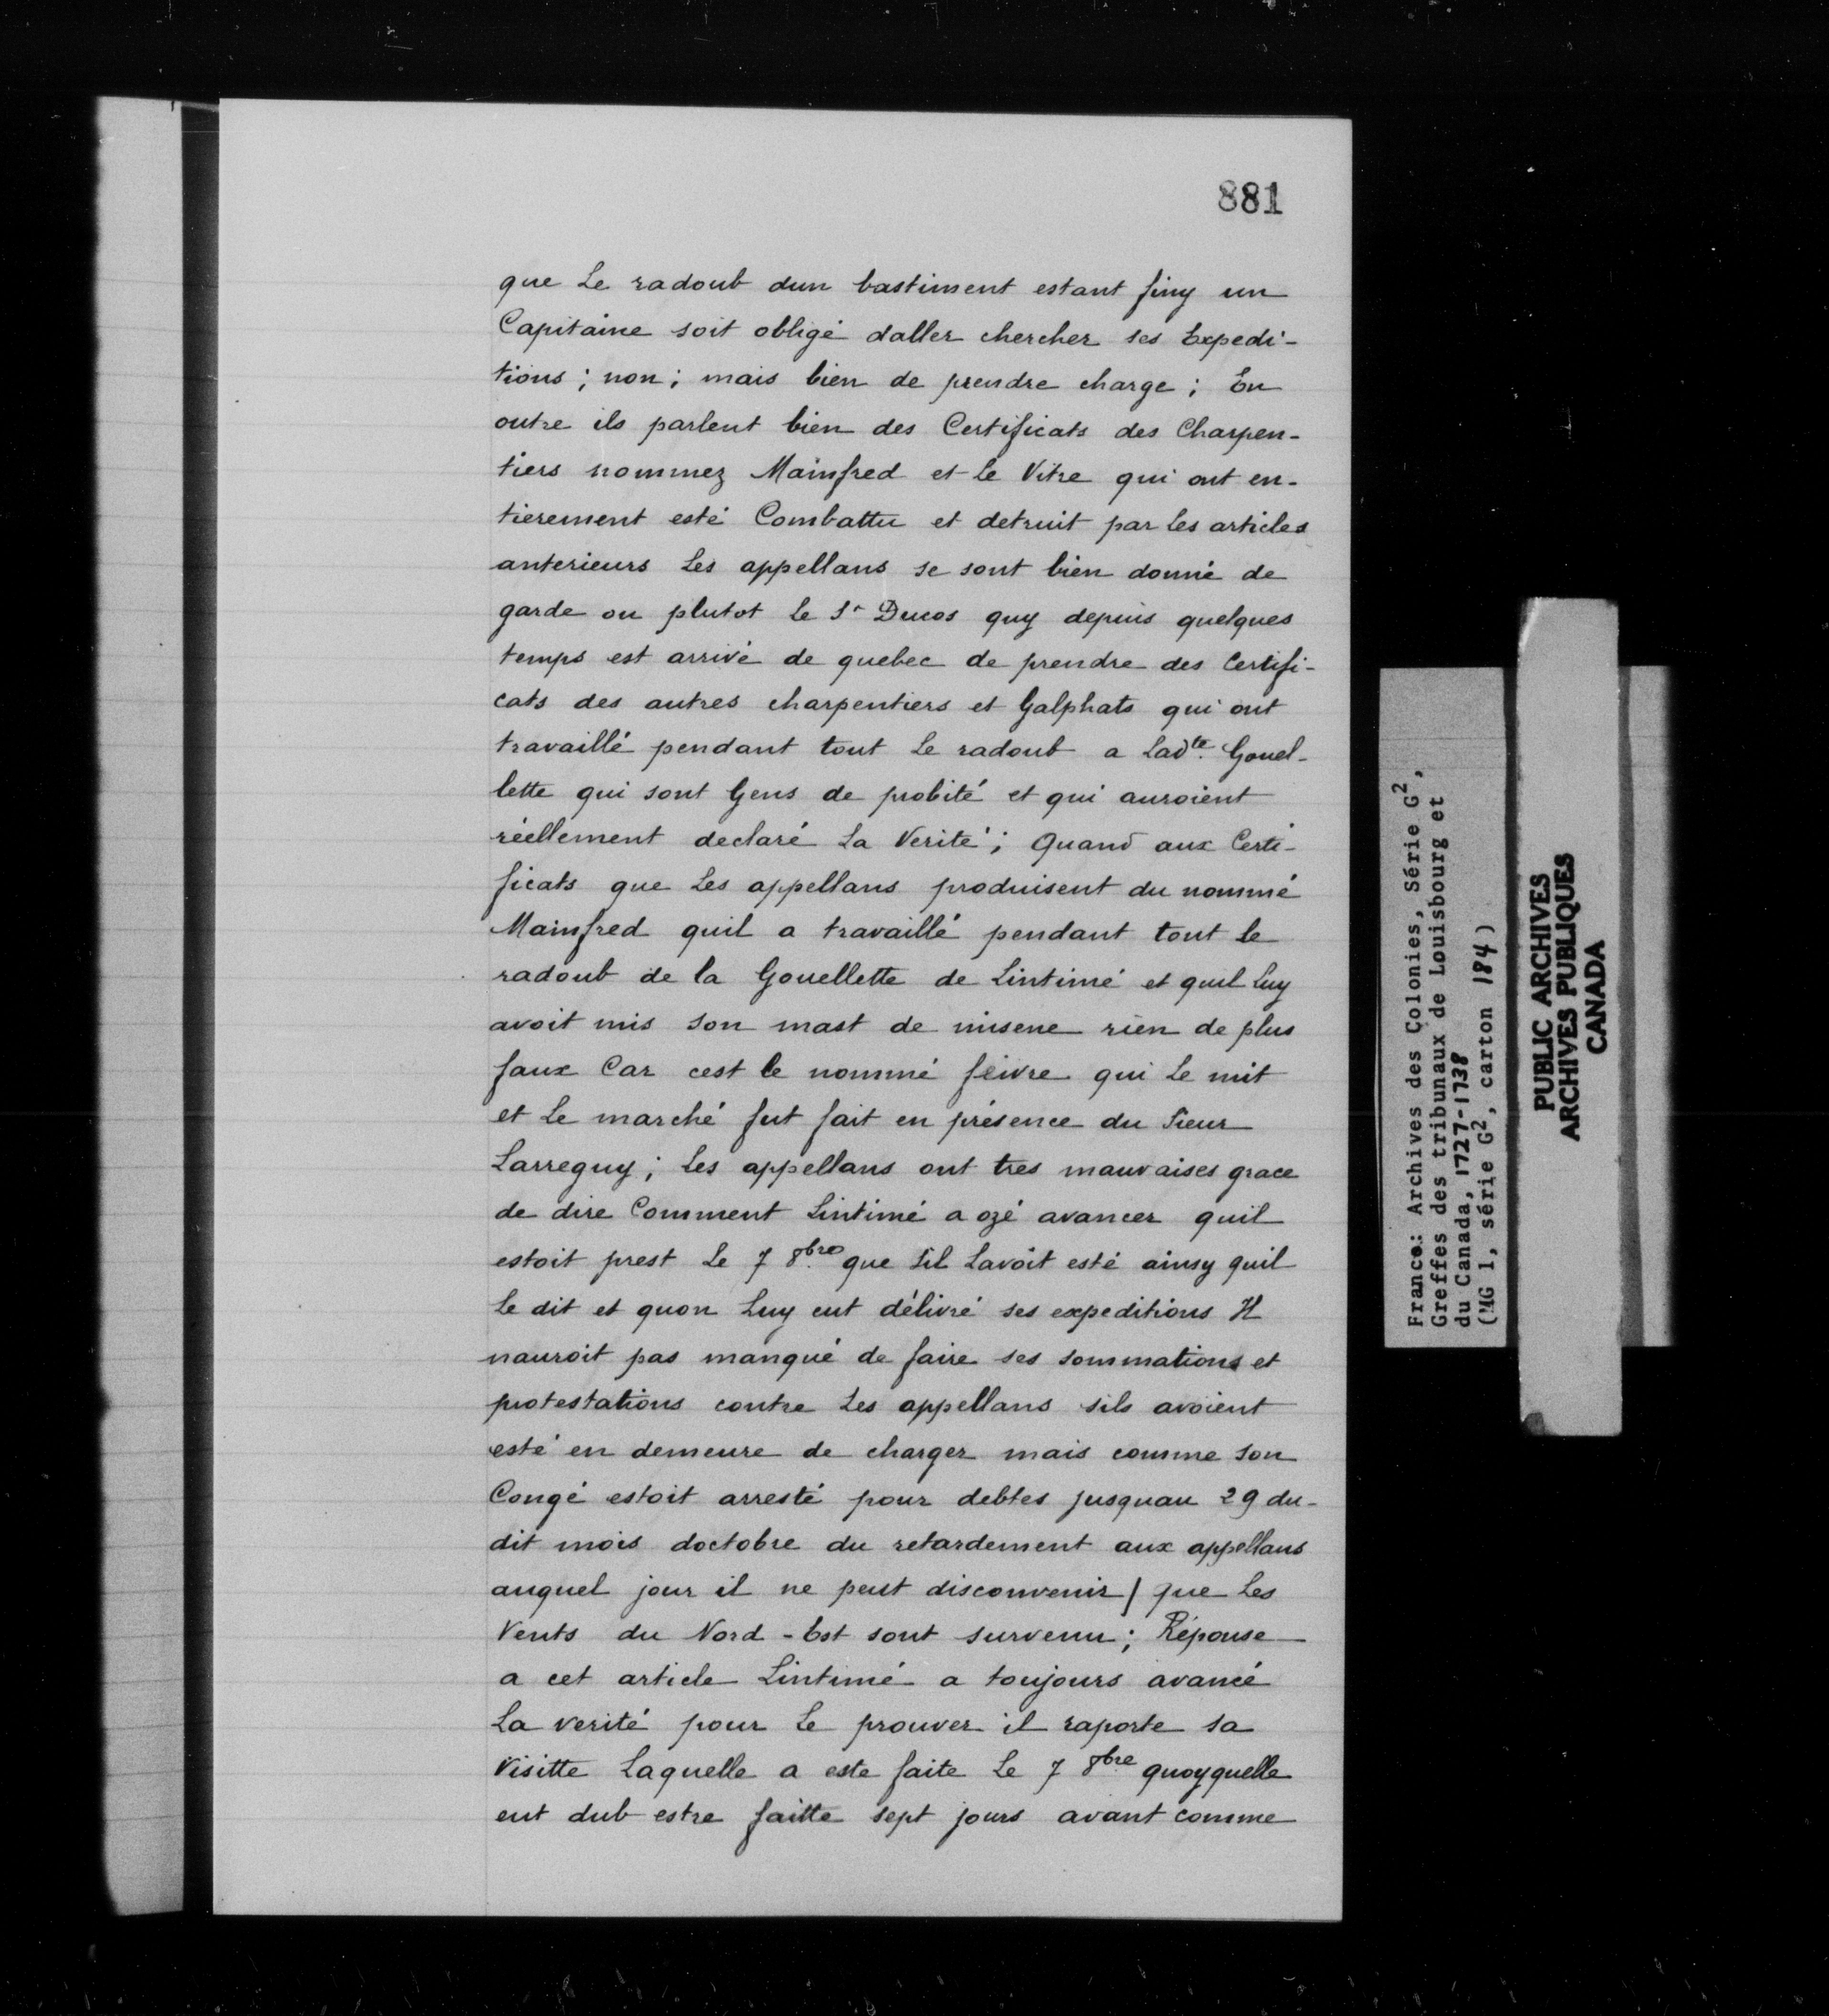 881
que Le radoub dun bastiment estant finy un
Capitaine soit obligé daller chercher ses Expedi-
tions ; non ; mais bien de prendre charge ; En
outre ils parlent bien des Certificats des Charpen-
tiers nommez Mainfred et le Vitre qui ont en-
tierement esté Combattu et detruit par les articles
anterieurs Les appellans se sont bien donné de
garde ou plutot le Sr Ducos quy depuis quelques
temps est arrivé de quebec de prendre des Certifi-
cats des autres charpentiers et Galphats qui ont
travaillé pendant tout Le radoub a Ladte. Gouel-
lette qui sont Gens de probité et qui auroient
réellement declaré La Verité ; Quand aux Certi-
ficats que Les appellans produisent du nommé
Mainfred quil a travaillé pendant tout le
radoub de la Gouellette de Lintimé et quil Luy
avoit mis son mast de misene rien de plus
faux Car cest le nommé feivre qui Le mit
et Le marché fut fait en présence du Sieur
Larreguy ; Les appellans ont tres mauvaises grace
de dire Comment Lintimé a ozé avancer quil
estoit prest Le 7 8bre que Sil Lavoit esté ainsy quil
le dit et quon Luy eut délivré ses expeditions Il
nauroit pas manqué de faire ses sommations et
protestations contre Les appellans sils avoient
esté en demeure de charger mais comme son
Congé estoit arresté pour debtes jusquau 29 du-
dit mois doctobre du retardement aux appellans
auquel jour il ne peut disconvenir / que Les
Vents du Nord-Est sont survenu ; Réponse
a cet article Lintimé a toujours avancé
La verité pour Le prouver il raporte sa
Visitte Laquelle a este faite Le 7 8bre quoyquelle
eut dub estre faitte sept jours avant comme
France: Archives des Colonies, Série G2,
Greffes des tribunaux de Louisbourg et
du Canada, 1727-1738
(MG 1, série G2, carton 184)
PUBLIC ARCHIVES
ARCHIVES PUBLIQUES
CANADA